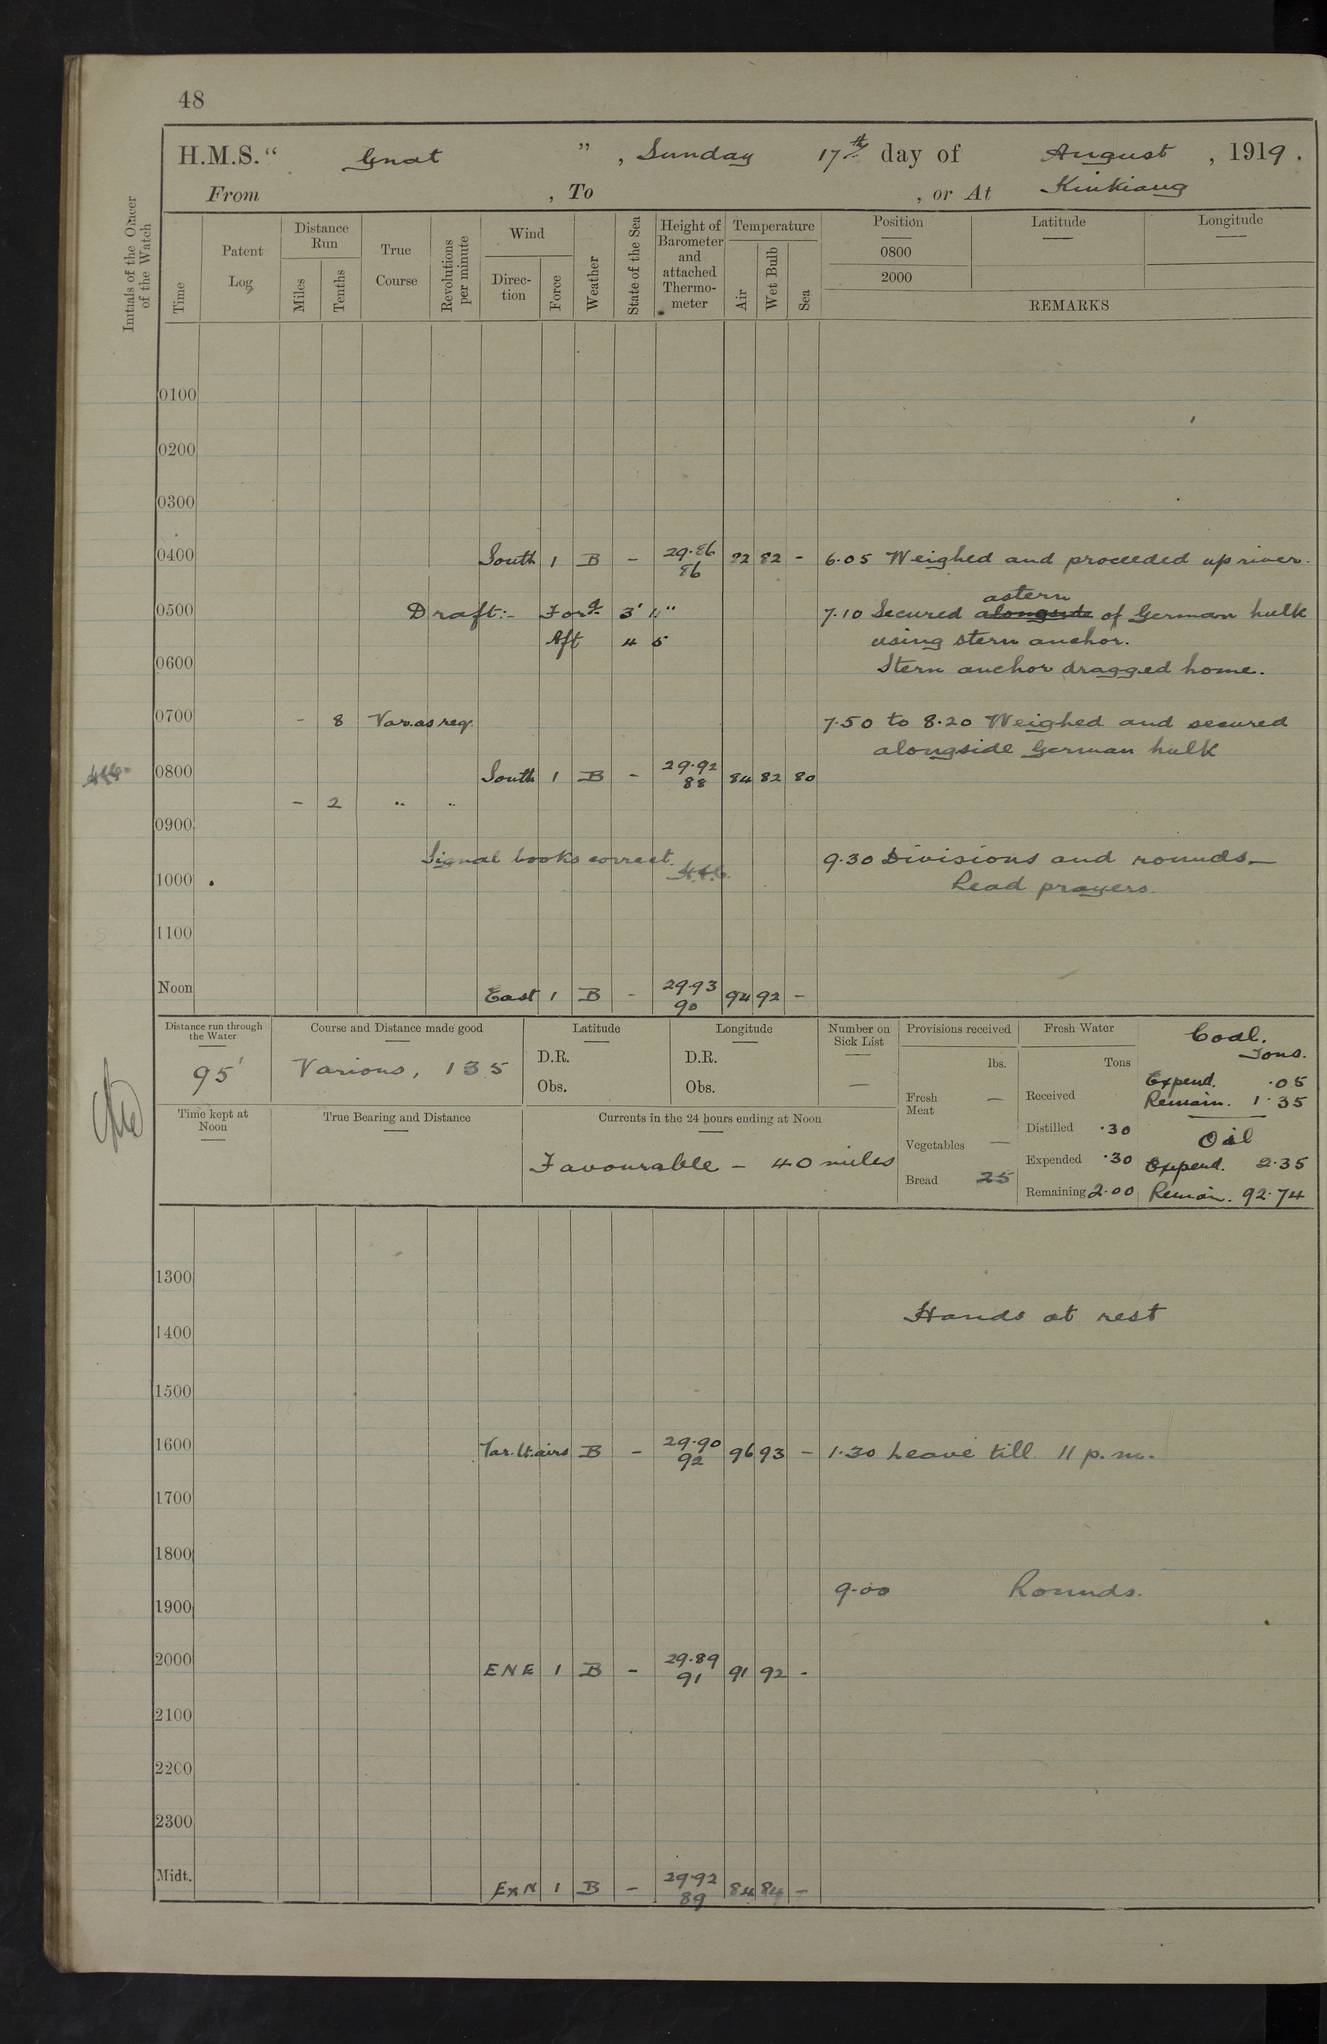 48
H.M.S. “ Gnat ” , Sunday 17th day of August , 1919 .
From , To , or At Kiukiang
Initials of the Officer of the Watch
Time
Patent Log
Distance Run
Miles
Tenths
True Course
Revolutions per minute
Wind
Direc- tion
Force
Weather
State of the Sea
Height of Barometer and attached Thermo- meter
Temperature
Air
Wet Bulb
Sea
Position
0800
2000
Latitude
Longitude
REMARKS
0100
0200
0300
0400 South 1 B - 29.86 86 82 82 - 6.05 Weighed and proceeded up river.
astern
0500 Draft:- Ford 3' 11" 7.10 Secured alongside of German hulk
Aft 4 5 using stern anchor.
0600 Stern anchor dragged home.
0700 - 8 Var. as req. 7.50 to 8.20 Weighed and secured
alongside German hulk
0800 South 1 B - 29.92 88 84 82 80
- 2 " "
0900
Signal books correct. 9.30 Divisions and rounds—
1000 Read prayers.
1100
Noon East 1 B - 29.93 90 94 92 -
Distance run through the Water
95'
Course and Distance made good
Various, 135
Latitude
D.R.
Obs.
Longitude
D.R.
Obs.
Number on Sick List
—
Provisions received
lbs.
Fresh Meat —
Vegetables —
Bread 25
Fresh Water
Tons
Received
Distilled .30
Expended .30
Remaining 2.00
Coal.
Tons.
Expend. .05
Remain. 1.35
Oil
Expend. 2.35
Remain. 92.74
Time kept at Noon
True Bearing and Distance
Currents in the 24 hours ending at Noon
Favourable - 40 miles
1300
Hands at rest
1400
1500
1600 Var. lt. airs B - 29.90 92 96 93 - 1.30 Leave till 11 p.m.
1700
1800
9.00 Rounds.
1900
2000 ENE 1 B - 29.89 91 91 92 -
2100
2200
2300
Midt. ExN 1 B - 29.92 89 84 84 -